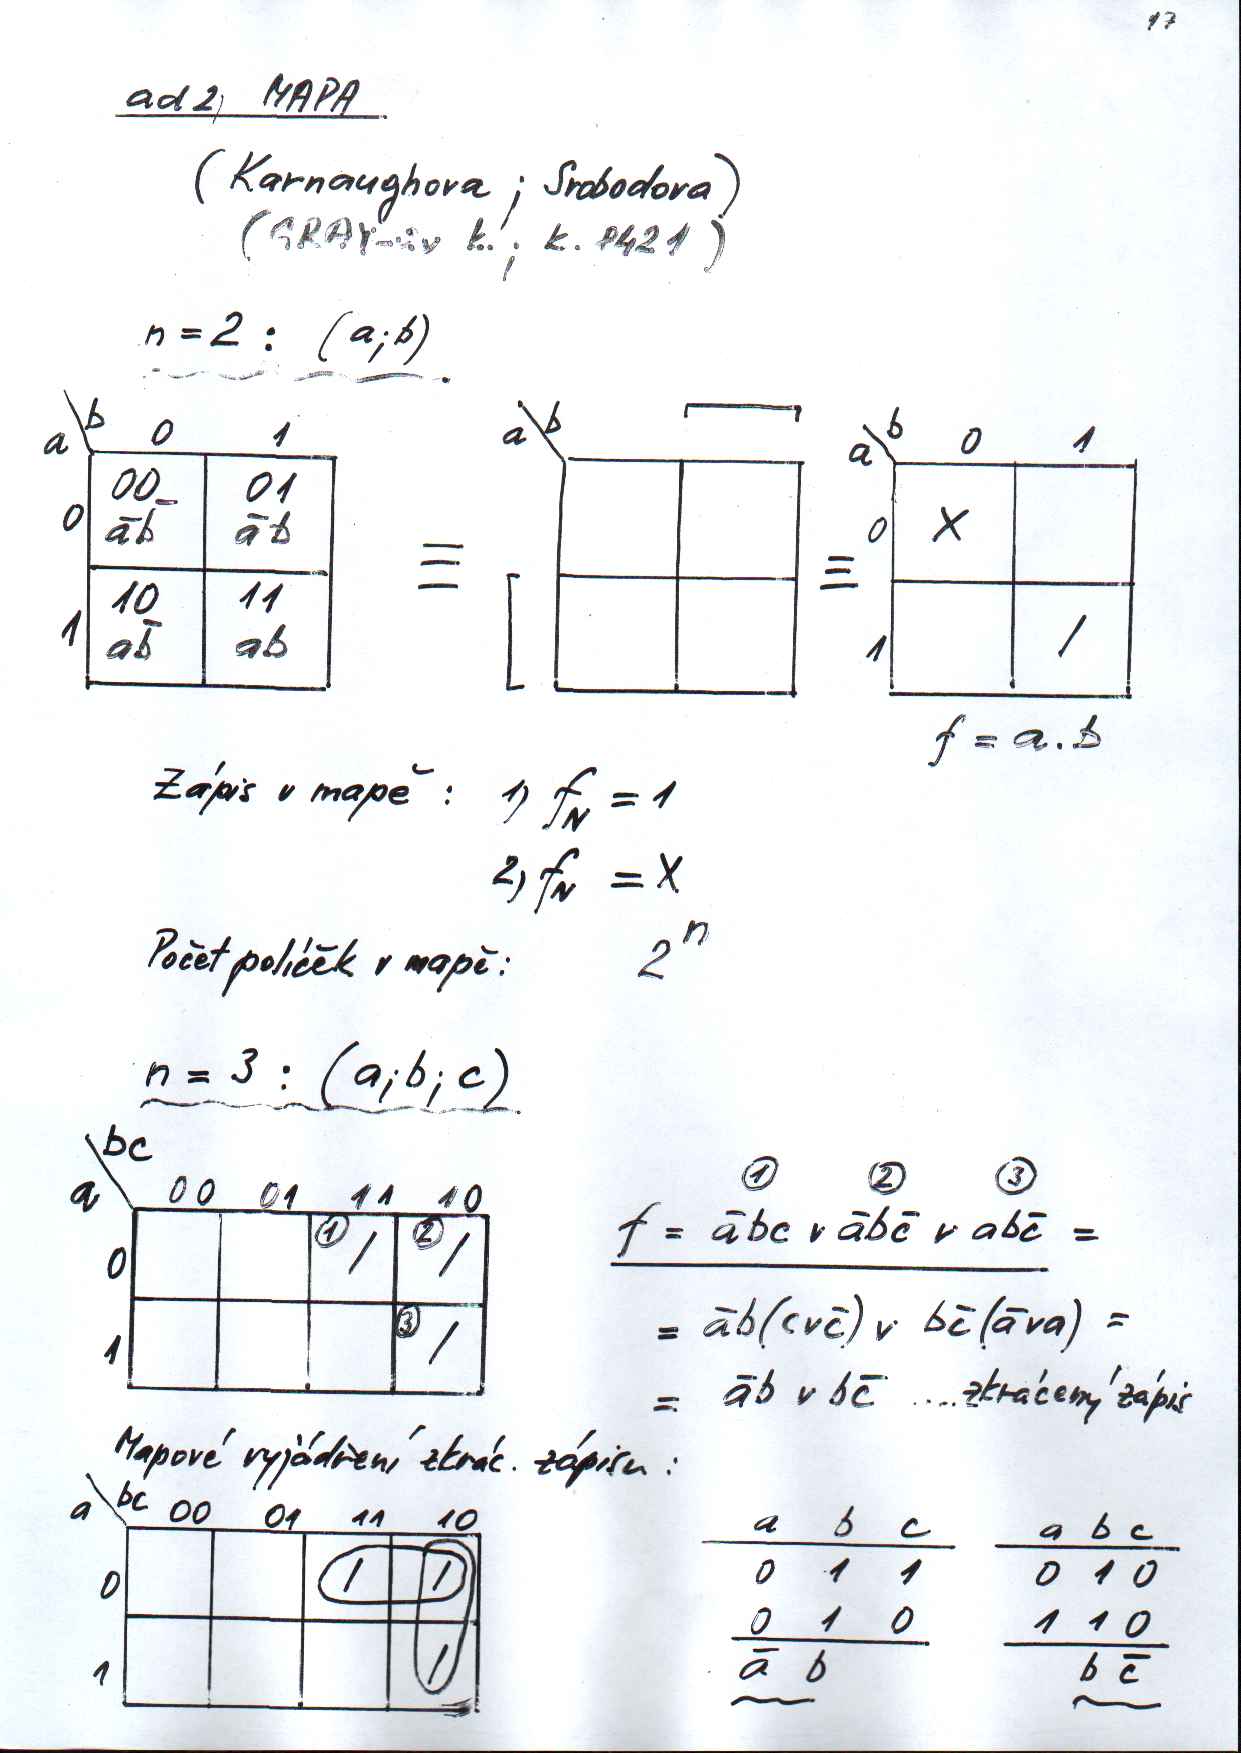 17
ad 2, MAPA
(Karnaughova ; Svobodova)
(GRAY-ův k. ; k. 8421)
n = 2 : (a;b)
a b 0 1
0 00 01
a̅b̅ a̅b
1 10 11
ab̅ ab
≡
a b
≡
a b 0 1
0 X
1 /
f = a.b
Zápis v mapě : 1) fN = 1
2) fN = X
Počet políček v mapě : 2ⁿ
n = 3 : (a;b;c)
a bc 00 01 11 10
0 ① / ② /
1 ③ /
① ② ③
f = a̅bc v a̅bc̅ v abc̅ =
= a̅b(cvc̅) v bc̅(a̅va) =
= a̅b v bc̅ .... zkrácený zápis
Mapové vyjádření zkrác. zápisu :
a bc 00 01 11 10
0 / /
1 /
a b c
0 1 1
0 1 0
a̅ b
a b c
0 1 0
1 1 0
b c̅